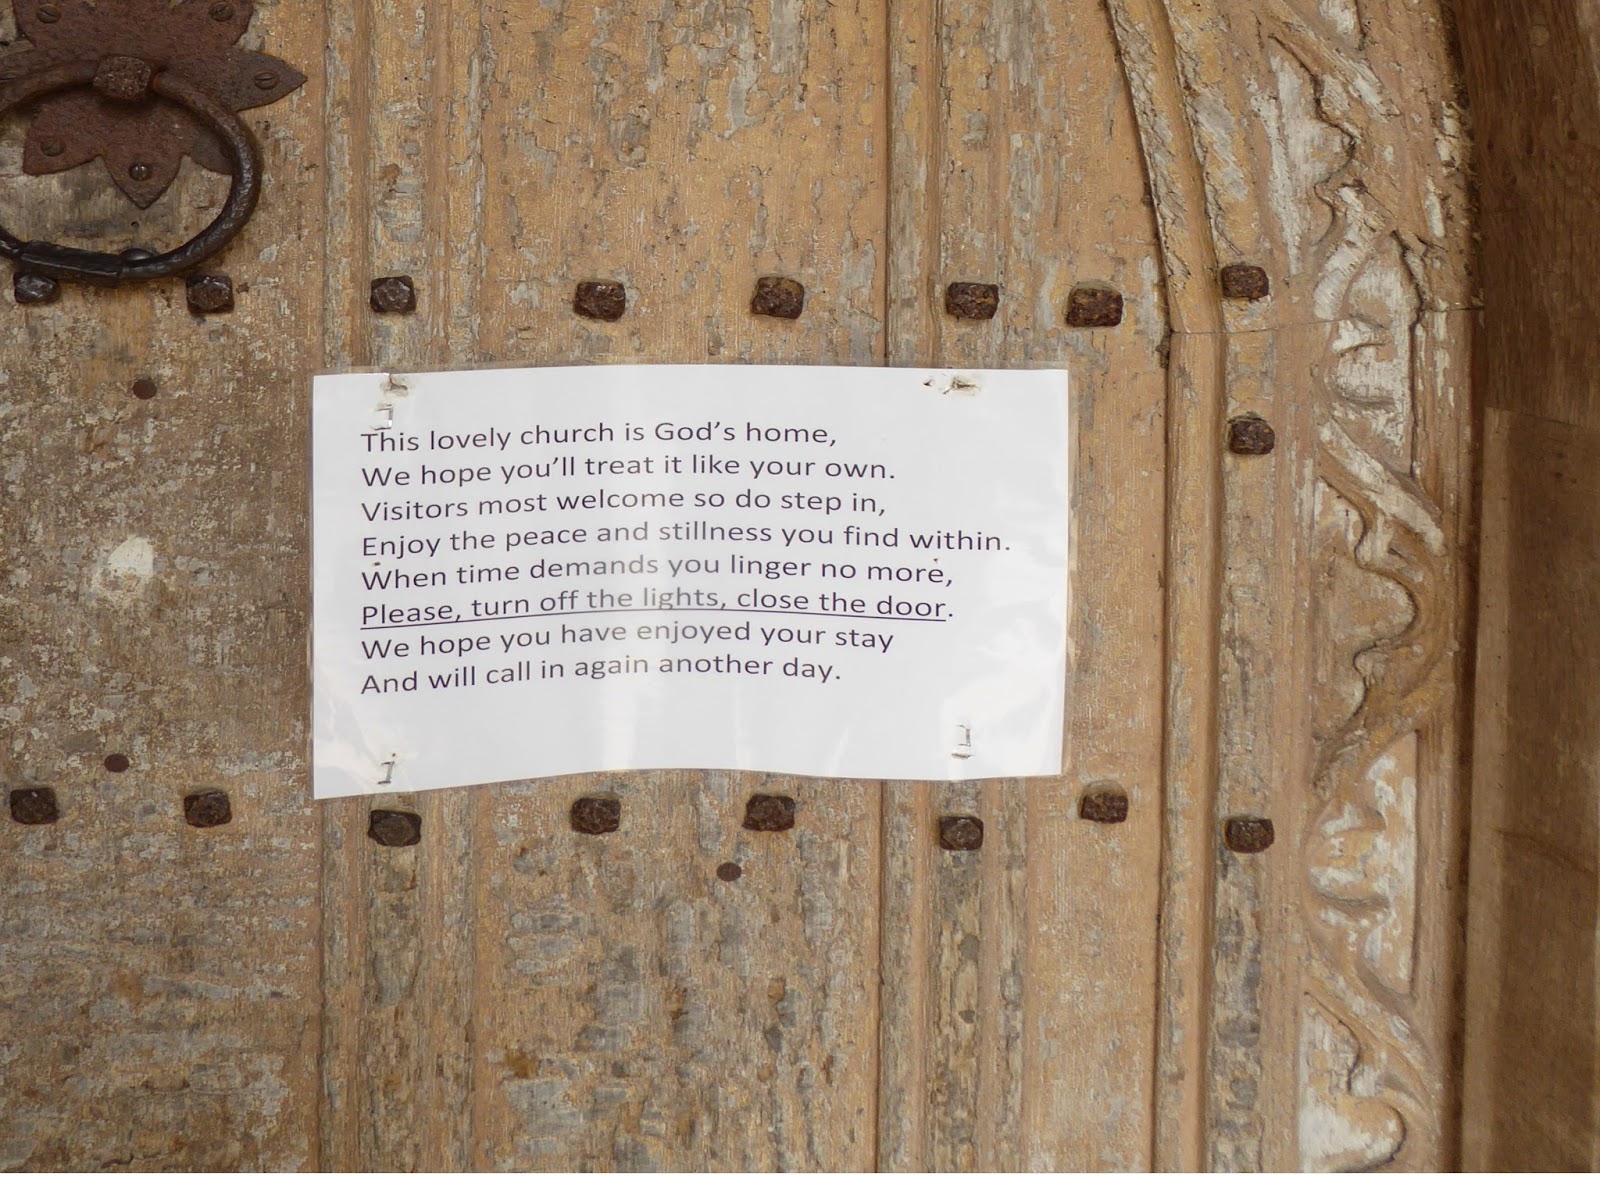 This lovely church is God's home,
We hope you'll treat it like your own.
Visitors most welcome so do step in,
Enjoy the peace and stillness you find within.
When time demands you linger no more,
Please, turn off the lights, close the door.
We hope you have enjoyed your stay
And will call in again another day.